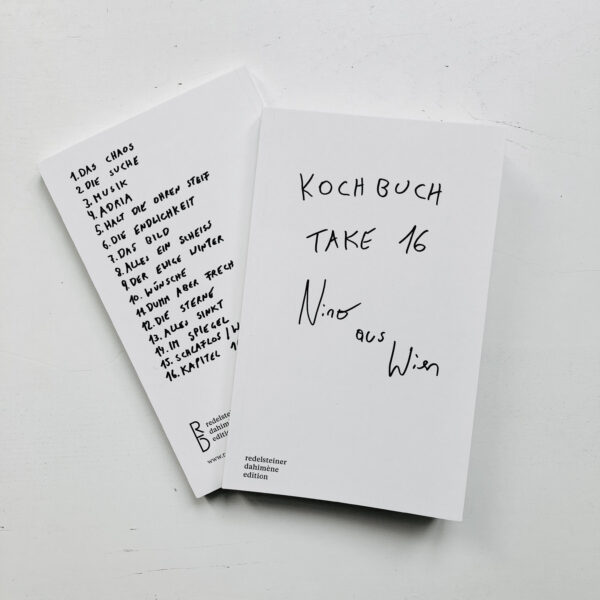 1. DAS CHAOS
2. DIE SUCHE
3. MUSIK
4. ADRIA
5. HALT DIE OHREN STEIF
6. DIE ENDLICHKEIT
7. DAS BILD
8. ALLES EIN SCHEISS
9. DER EWIGE WINTER
10. WÜNSCHE
11. DUMM ABER FRECH
12. DIE STERNE
13. ALLES SINKT
14. IM SPIEGEL
15. SCHLAFLOS / W
16. KAPITEL 1
RD
redelsteiner
dahimène
edition
www.r
KOCHBUCH
TAKE 16
Nino
aus
Wien
redelsteiner
dahimène
edition